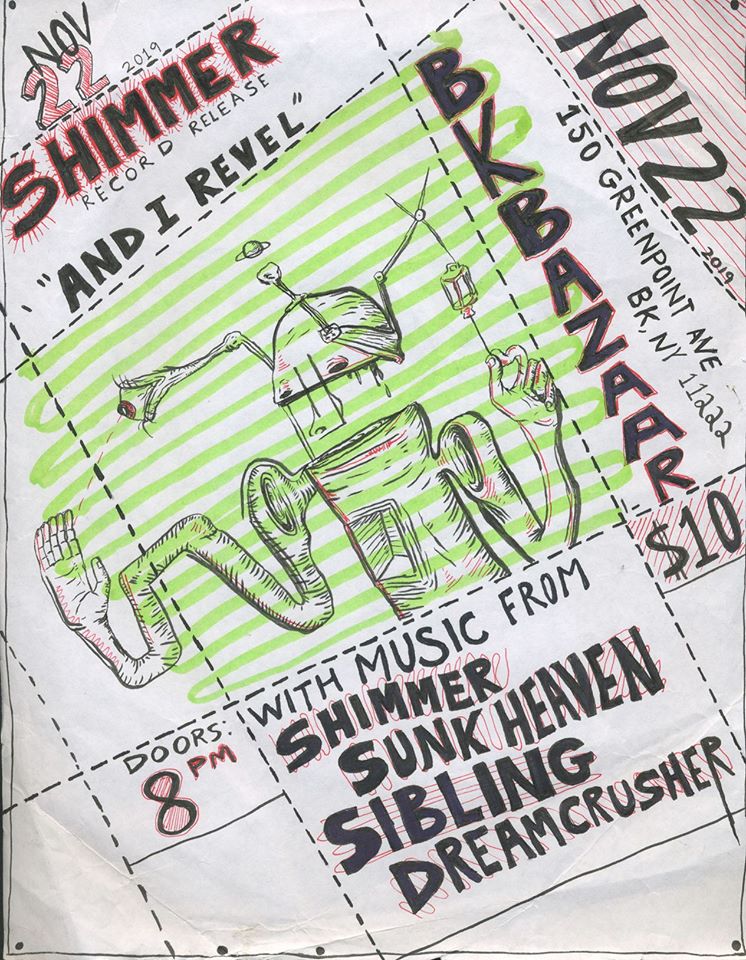 NOV
22 2019
SHIMMER
RECORD RELEASE
"AND I REVEL"
BKBAZAAR
NOV 22
2019
150 GREENPOINT AVE
BK, NY 11222
$10
WITH MUSIC FROM
SHIMMER
SUNK HEAVEN
SIBLING
DREAMCRUSHER
DOORS:
8PM